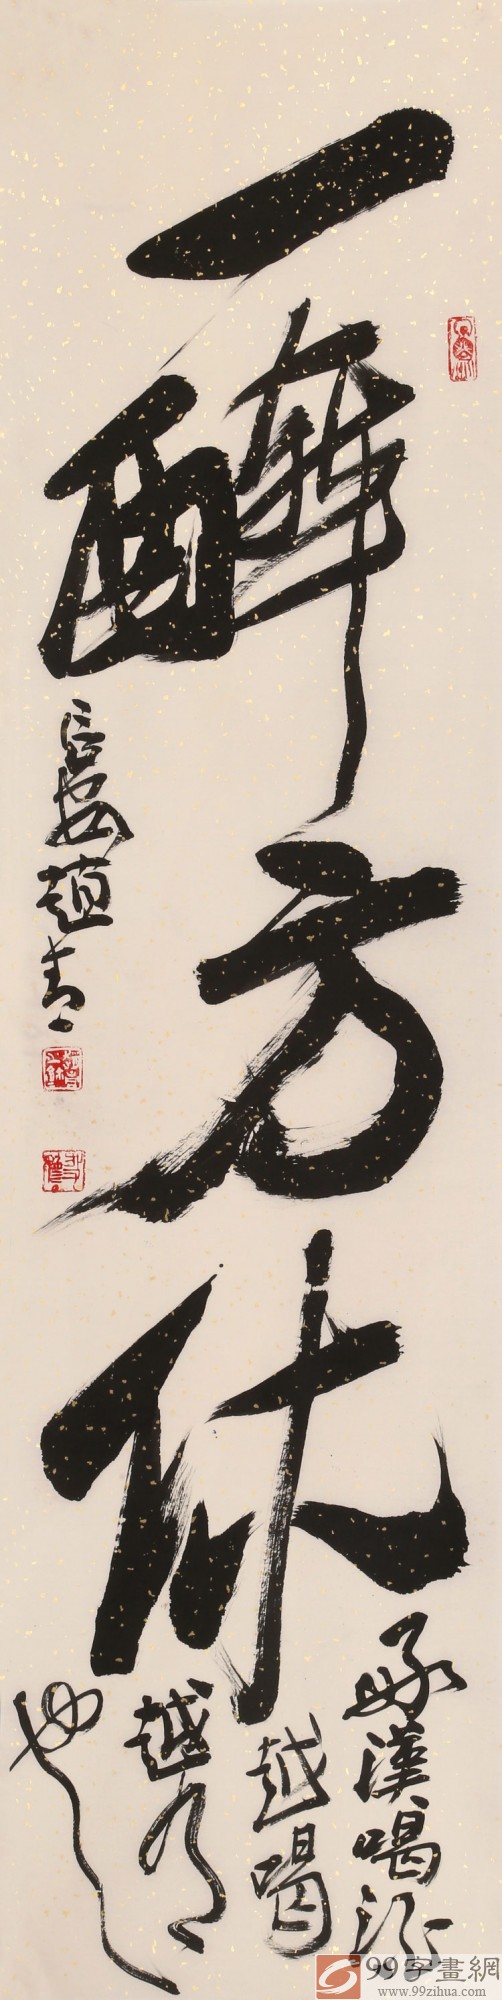 一醉方休
好漢喝酒
越喝
越有
也
長安趙青
99字畫網
www.99zihua.com